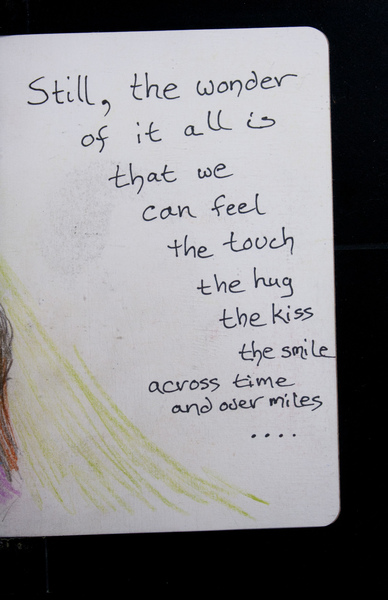 Still, the wonder
of it all is
that we
can feel
the touch
the hug
the kiss
the smile
across time
and over miles
....